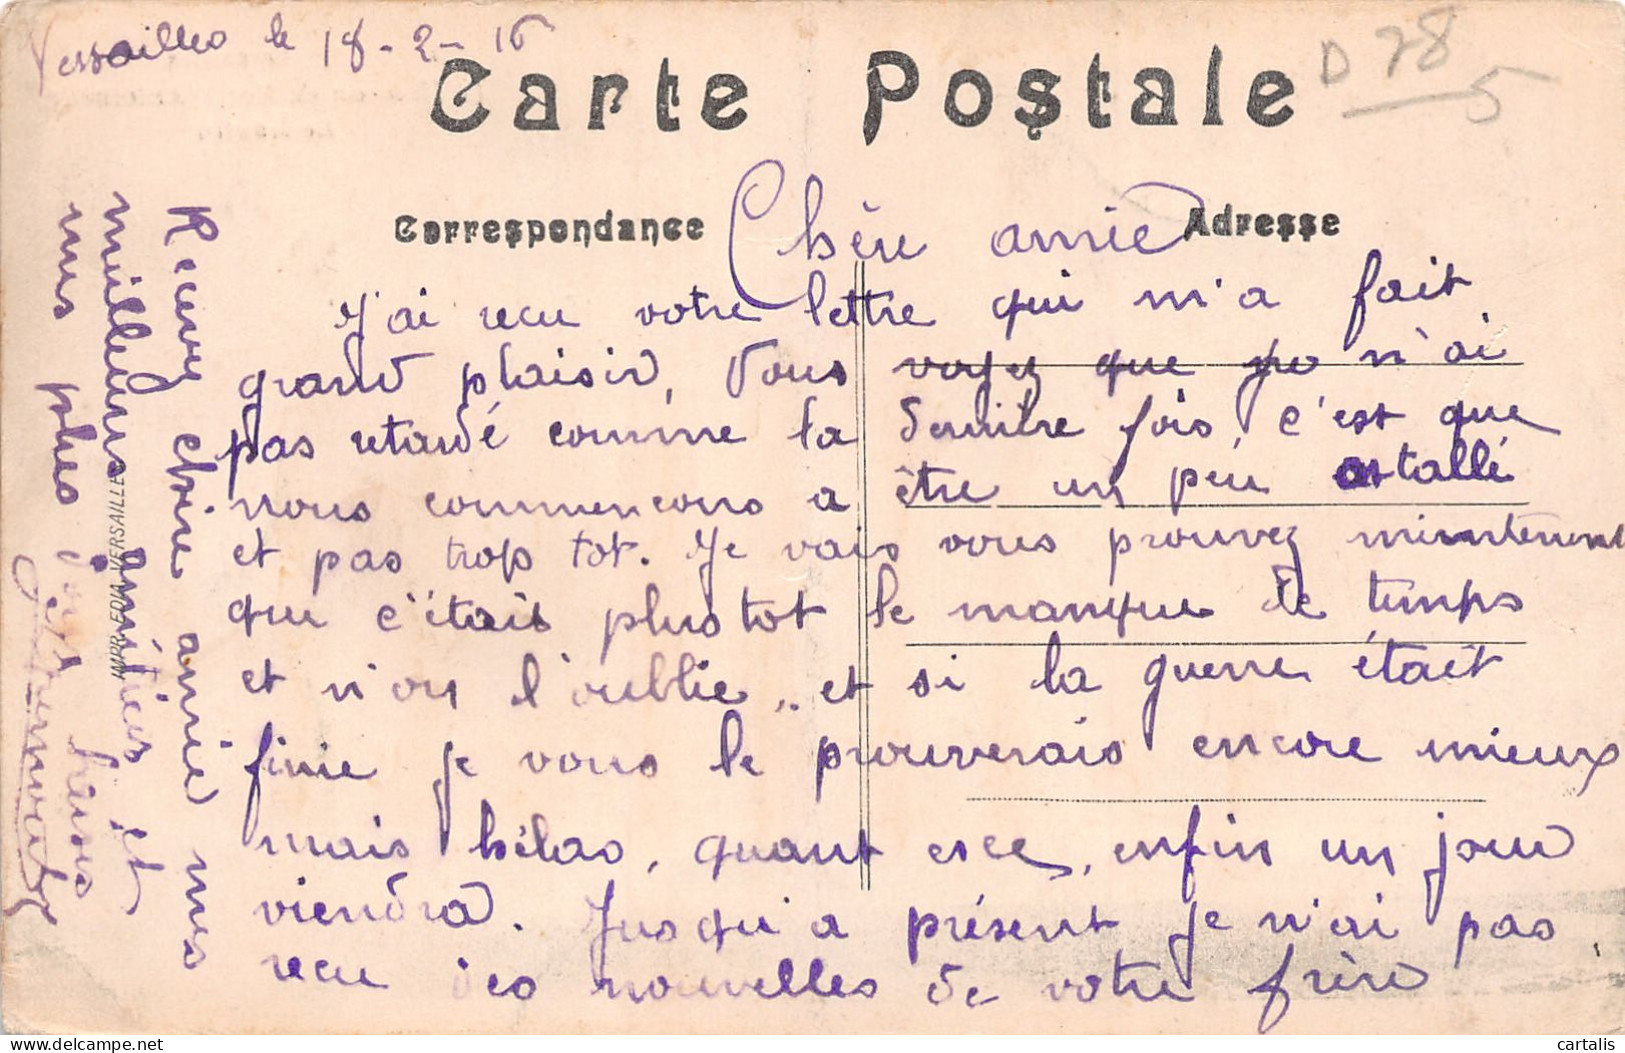 Versailles le 18-2-16
D 78
5
Carte Postale
Correspondance
Adresse
Chère amie
J'ai recu votre lettre qui m'a fait
grand plaisir, Vous voyez que je n'ai
pas retardé comme la dernière fois, c'est que
nous commencons a être un peu astallé
et pas trop tot. Je vais vous prouvez mintenent
que c'étais plustot le manque de temps
et n'on l'oublie.. et si la guerre était
finie je vous le prouverais encore mieux
mais hélas, quant esce, enfin un jour
viendra. Jusqui a présent je n'ai pas
recu des nouvelles de votre frère
Recevez chère amie mes
meilleures amitiées et
mes plus
IMPR. EDIA VERSAILLES
cartalis